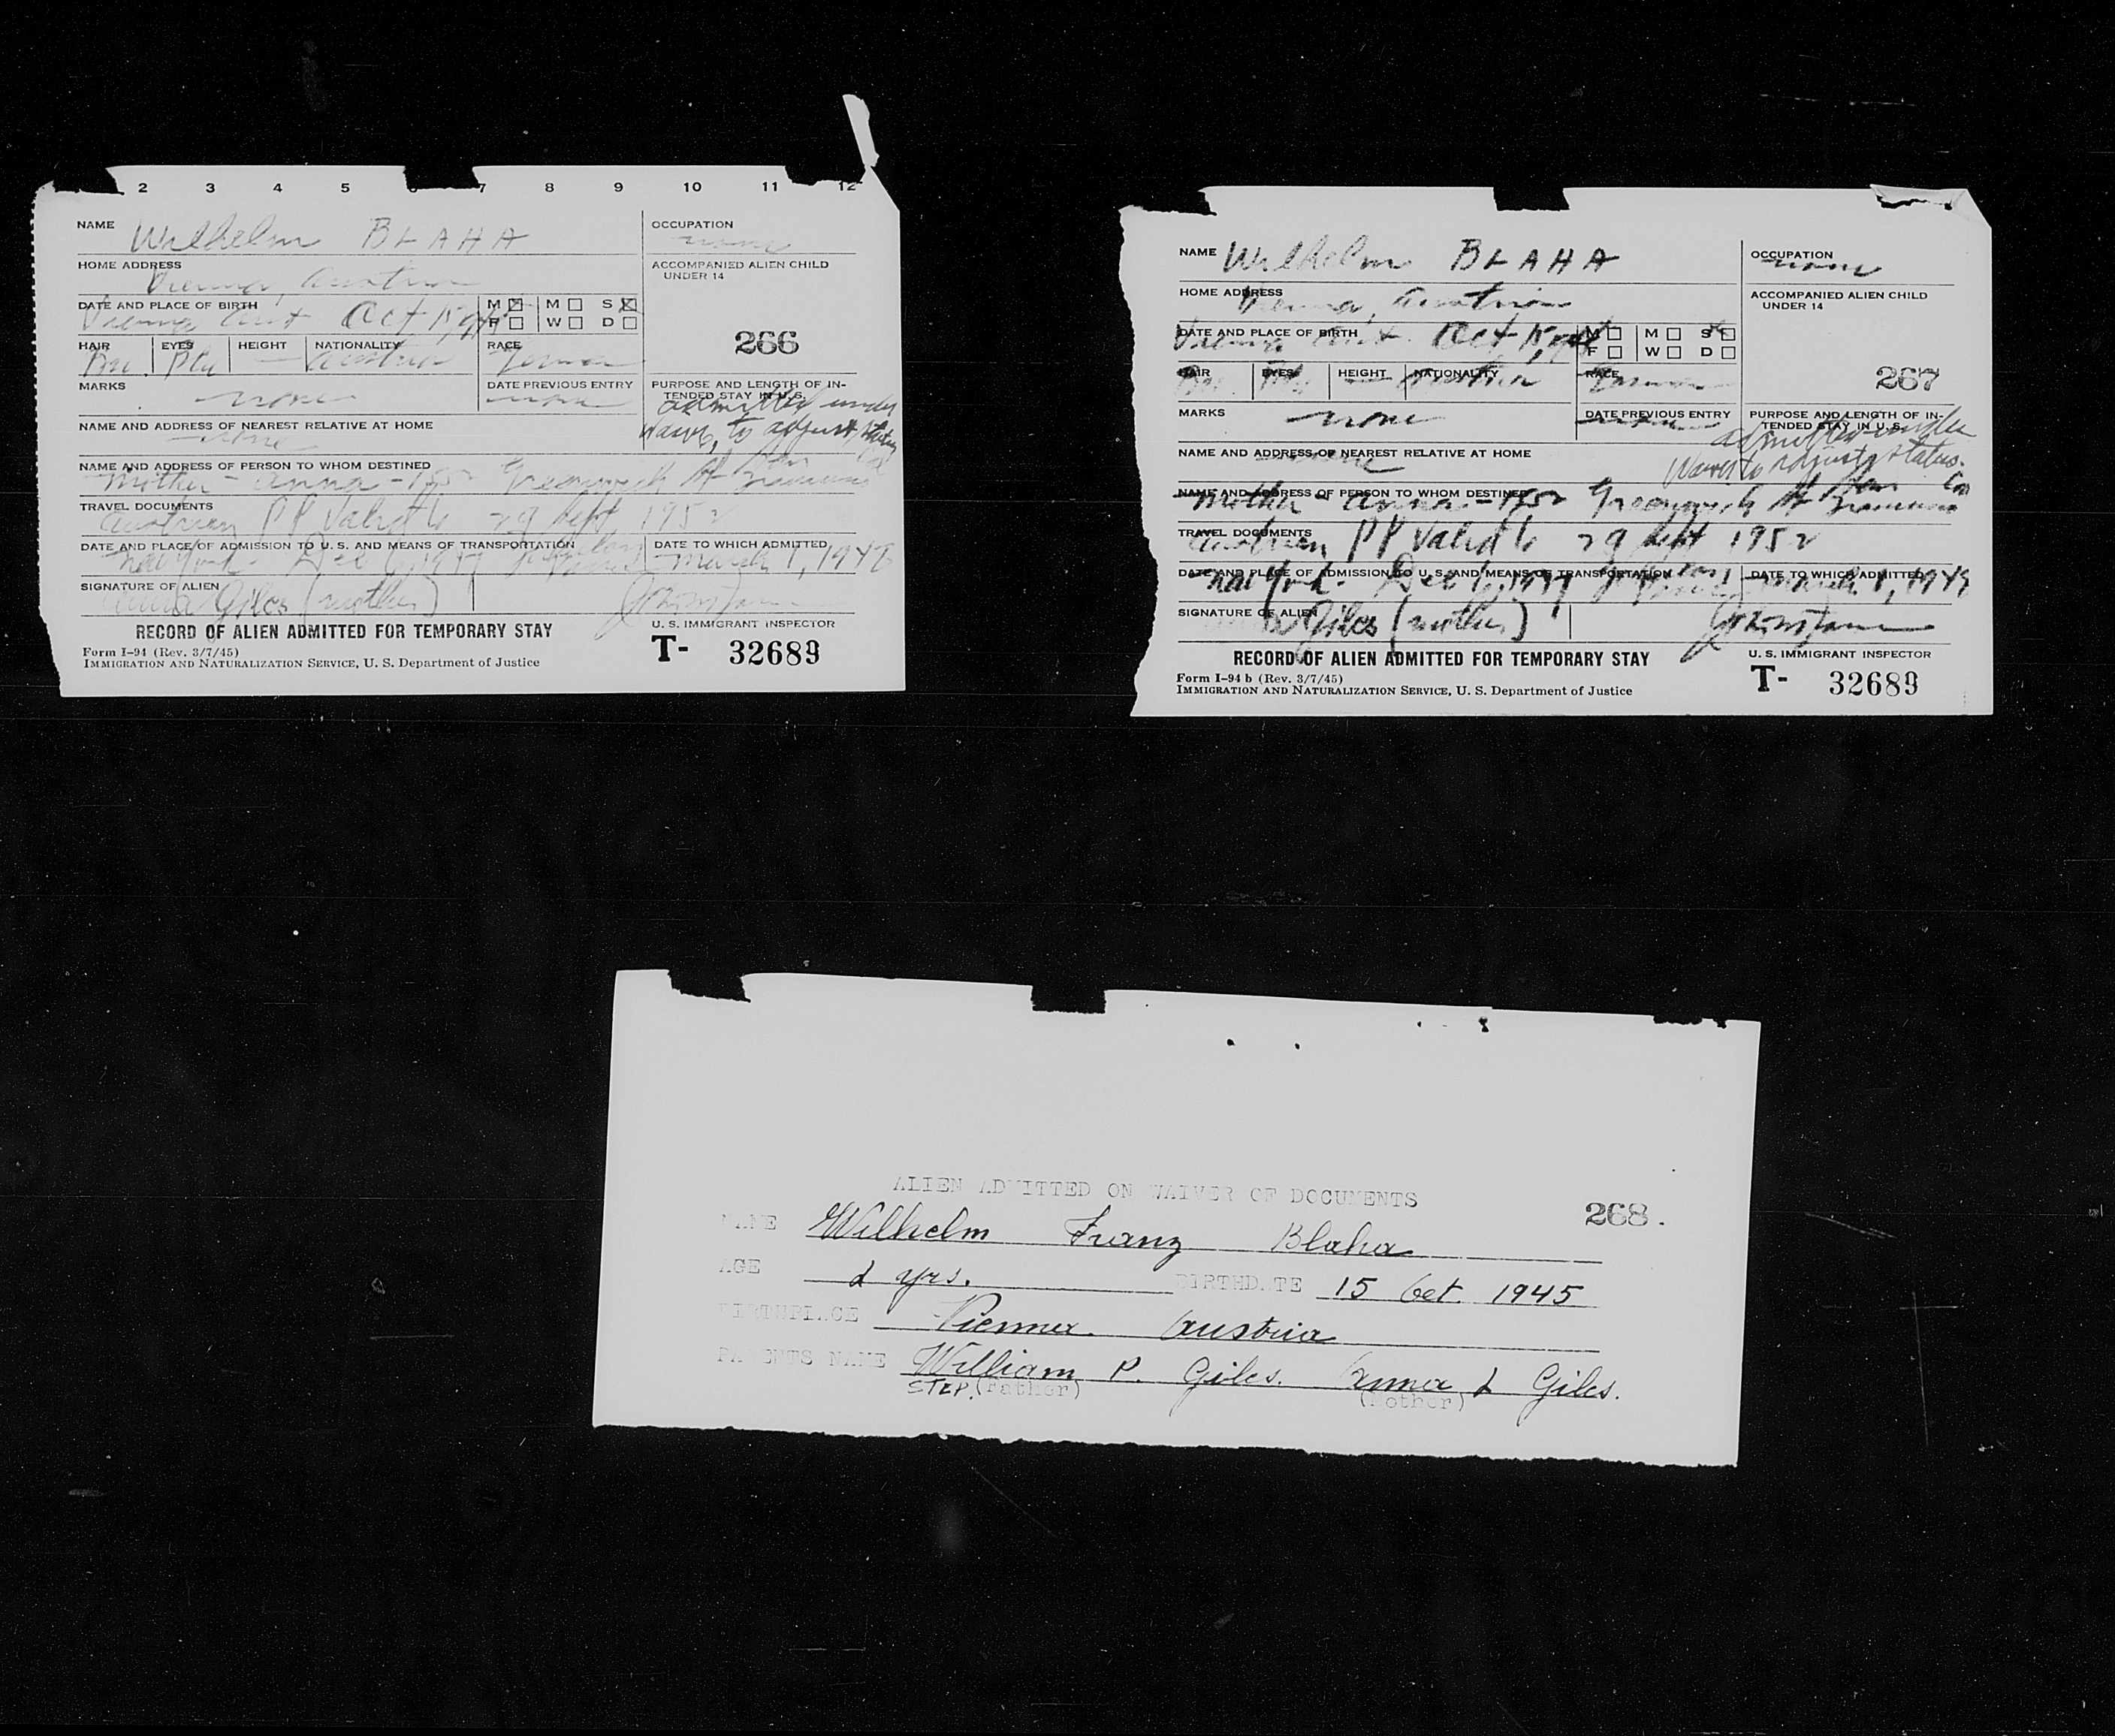 2 3 4 5 6 7 8 9 10 11 12
NAME Wilhelm BLAHA
OCCUPATION none
HOME ADDRESS Vienna, Austria
ACCOMPANIED ALIEN CHILD
UNDER 14
DATE AND PLACE OF BIRTH Vienna Aust Oct 15,
M M S
F W D
266
HAIR Bn. EYES Blu HEIGHT — NATIONALITY Austria RACE German
MARKS none
DATE PREVIOUS ENTRY none
PURPOSE AND LENGTH OF IN-
TENDED STAY IN U.S.
admitted under
waiver, to adjust status
NAME AND ADDRESS OF NEAREST RELATIVE AT HOME
none
NAME AND ADDRESS OF PERSON TO WHOM DESTINED
Mother - Anna - Greenwich St
TRAVEL DOCUMENTS
Austrian PP Valid to 29 Sept 1952
DATE AND PLACE OF ADMISSION TO U. S. AND MEANS OF TRANSPORTATION
New York - Dec 6, 1947
DATE TO WHICH ADMITTED
March 1, 1948
SIGNATURE OF ALIEN
Anna Giles (mother)
U. S. IMMIGRANT INSPECTOR
RECORD OF ALIEN ADMITTED FOR TEMPORARY STAY
Form I-94 (Rev. 3/7/45)
IMMIGRATION AND NATURALIZATION SERVICE, U. S. Department of Justice
T- 32689
NAME Wilhelm BLAHA
OCCUPATION none
HOME ADDRESS Vienna, Austria
ACCOMPANIED ALIEN CHILD
UNDER 14
DATE AND PLACE OF BIRTH Vienna Aust. Oct 15,
M M S
F W D
HAIR Bn. EYES Blu HEIGHT — NATIONALITY Austria RACE German
267
MARKS none
DATE PREVIOUS ENTRY none
PURPOSE AND LENGTH OF IN-
TENDED STAY IN U.S.
admitted under
Waiver to adjust status.
NAME AND ADDRESS OF NEAREST RELATIVE AT HOME
none
NAME AND ADDRESS OF PERSON TO WHOM DESTINED
Mother - Anna - Greenwich St
TRAVEL DOCUMENTS
Austrian PP Valid to 29 Sept 1952
DATE AND PLACE OF ADMISSION TO U. S. AND MEANS OF TRANSPORTATION
New York - Dec 6, 1947
DATE TO WHICH ADMITTED
March 1, 1948
SIGNATURE OF ALIEN
Giles (mother)
U. S. IMMIGRANT INSPECTOR
RECORD OF ALIEN ADMITTED FOR TEMPORARY STAY
Form I-94 b (Rev. 3/7/45)
IMMIGRATION AND NATURALIZATION SERVICE, U. S. Department of Justice
T- 32689
ALIEN ADMITTED ON WAIVER OF DOCUMENTS
268.
NAME Wilhelm Franz Blaha
AGE 2 yrs. BIRTHDATE 15 Oct 1945
BIRTHPLACE Vienna Austria
PARENTS NAME William P. Giles. Anna L Giles.
STEP. (Father) (Mother)